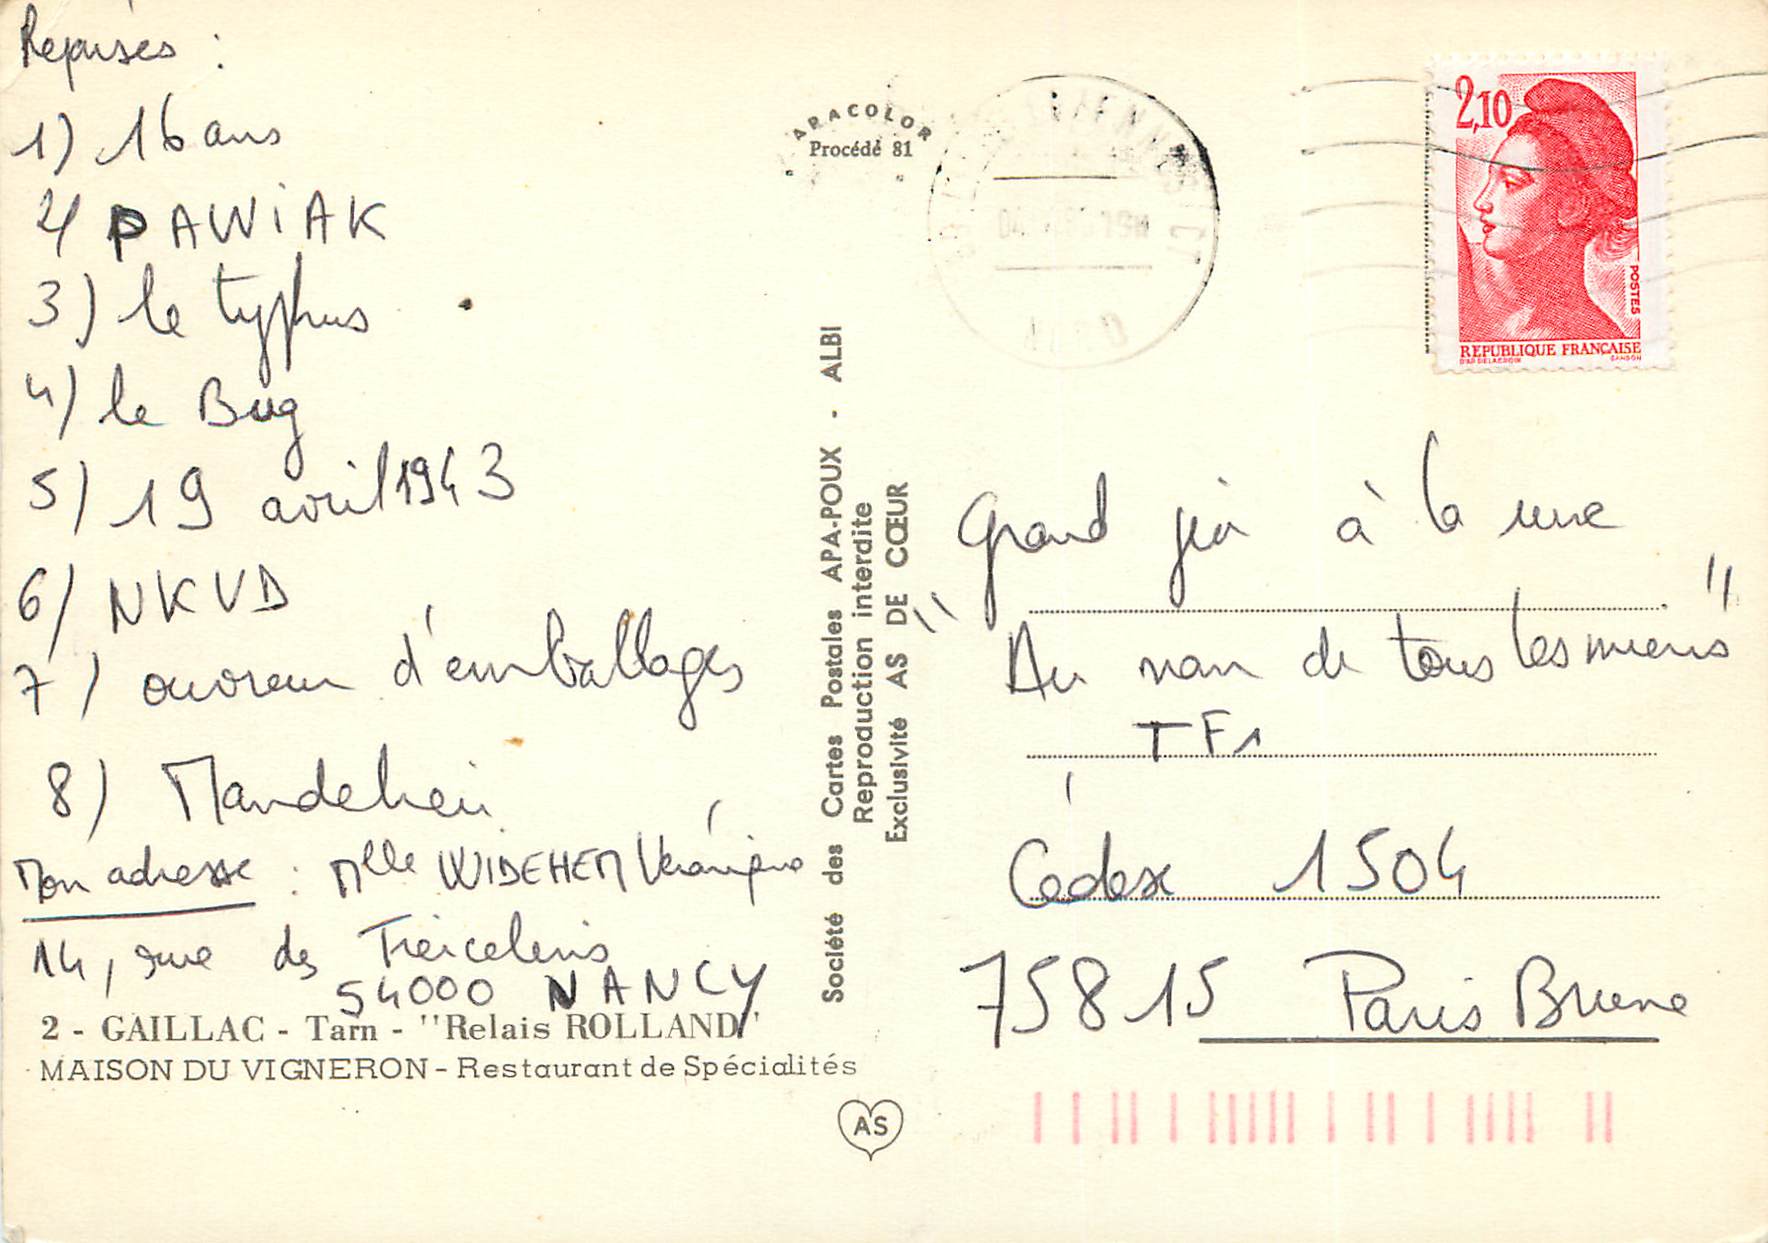 Réponses :
1) 16 ans
2) PAWIAK
3) le typhus
4) le Bug
5) 19 avril 1943
6) NKVD
7) ouvreur d'emballages
8) Mandelieu
Mon adresse : Mlle WIDEHEM Véronique
14, rue des Tiercelins
54000 NANCY
2 - GAILLAC - Tarn - "Relais ROLLAND"
MAISON DU VIGNERON - Restaurant de Spécialités
APACOLOR
Procédé 81
Société des Cartes Postales APA-POUX - ALBI
Reproduction interdite
Exclusivité AS DE CŒUR
AS
2,10
POSTES
REPUBLIQUE FRANÇAISE
D'AP DELACROIX GANDON
Grand jeu à la une
"Au nom de tous les miens"
TF1
Cédex 1504
75815 Paris Brune